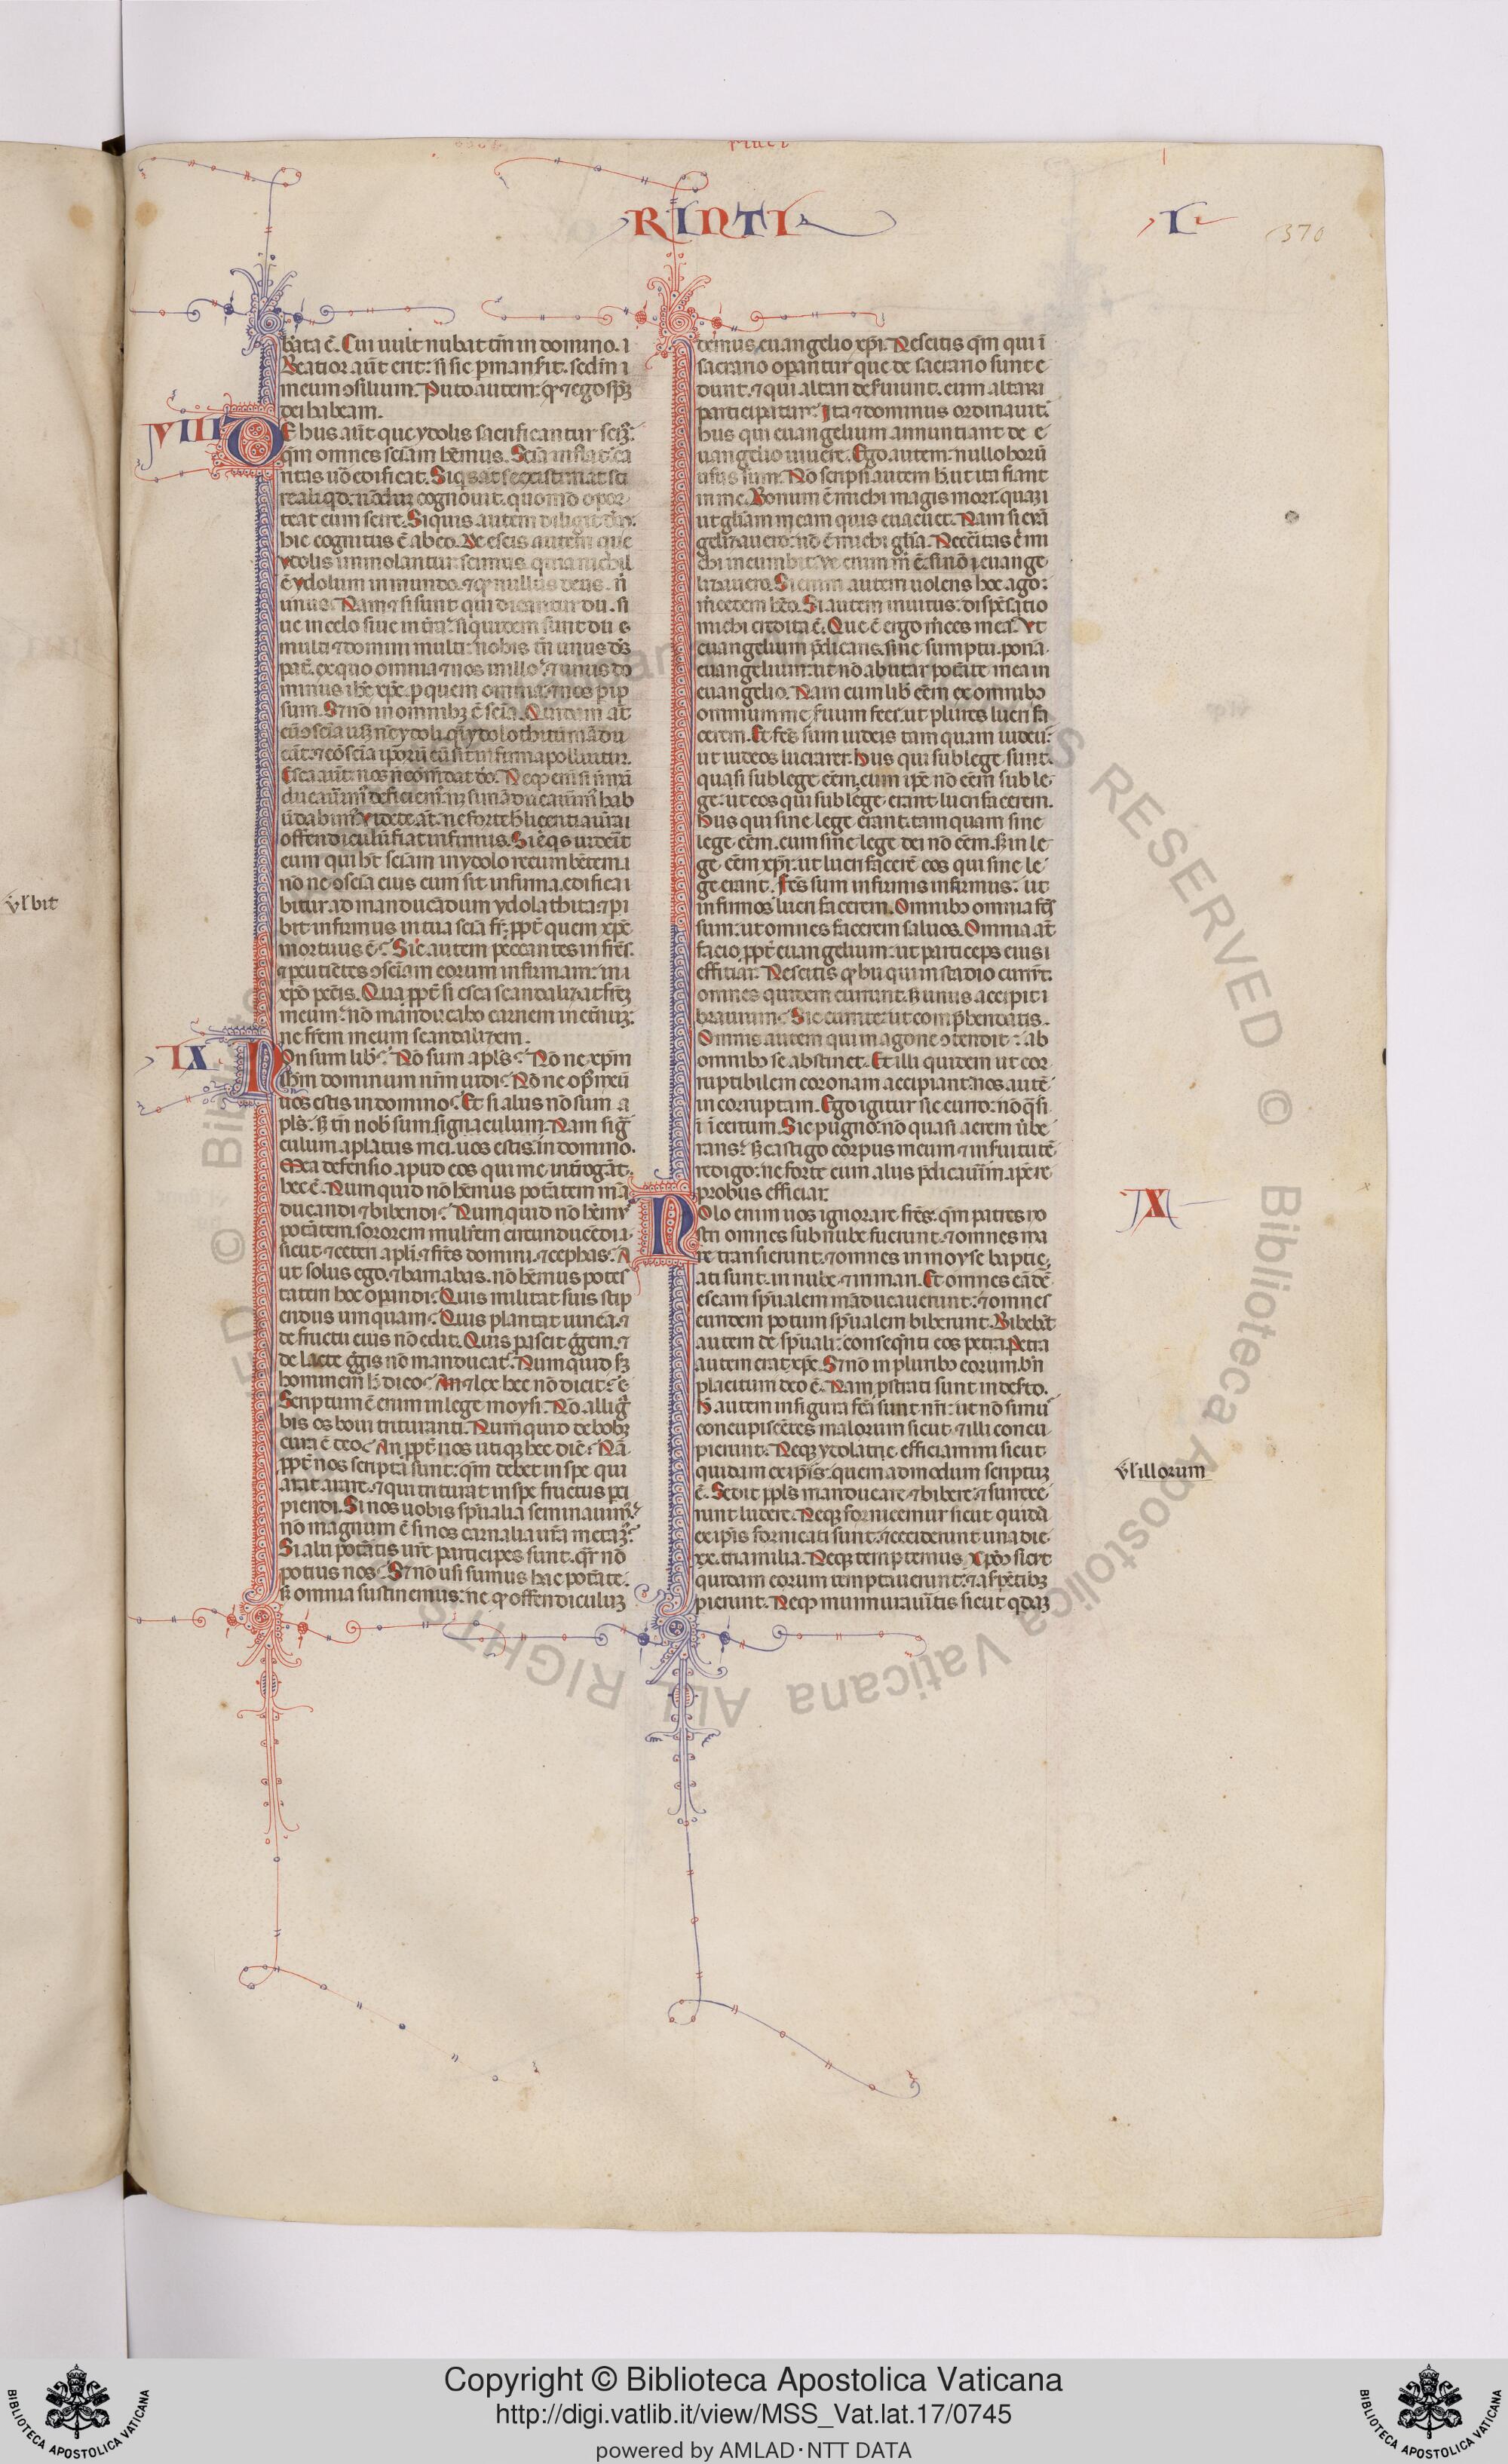 RINTI
I
370
VIII
IX
X
ƀata ē. Cui uult nubat tm̄ in domino. i
Beatior aut̄ erit: si sic ꝑmanserit. sedm̄ i
meum ꝯsilium. Puto autem: ꝙ ⁊ ego sp̄ꝫ
dei habeam.
DE hus aut̄ que ydolis sacrificantur scīꝫ:
qm̄ omnes sciam hēmus. Scīa inflat: ca
ritas uō edificat. Siq̄s at̄ se existimat sci
re aliqd̄: nōdū cognouit. quomō opor
teat eum scire. Si quis autem diligit dm̄:
hic cognitus ē ab eo. De escis autem que
ydolis immolantur: scimus quia nichil
ē ydolum in mundo. ⁊ ꝙ nullus deus. n̄
unus. Nam ⁊ si sunt qui dicantur dii. si
ue in celo siue in tr̄a: siquidem sunt dii
multi ⁊ domini multi: nobis tn̄ unus ds̄
pat̄. ex quo omnia ⁊ nos in illo: ⁊ unus do
minus ihc xpc. ꝑ quem omnia: ⁊ nos ꝑ ip̄
sum. Sꝫ nō in omnibꝫ ē scīa. Quidam at̄
Esca aut̄ nos n̄ cōmēdat dō. Neqꝫ
offendiculū fiat infirmis. Si
eum qui ht̄ sciam in ydolo recumbētem. i
nō ne ꝯscīa eius cum sit infirma. edifica i
bitur ad manducādum ydolathita: ⁊ pi
bit infirmus in tua scīa fr̄. ꝓpt̄ quem xpc
mortuus ē. Sic autem peccantes in fr̄s.
⁊ ꝑcutiētes ꝯsciam eorum infirmam: in i
xpō pctīs. Qua ꝓpt̄ si esca scandalizat fr̄ꝫ
meum: nō manducabo carnem in et̄nuꝫ:
ne frēm meum scandalizem.
NOn sum lib̄. Nō sum apls̄. Nō ne xpm̄
ihm̄ dominum nr̄m uidi. Nō ne op̄ meū
uos estis in domino. Et si aliis nō sum a
pls̄: sꝫ tn̄ uob̄ sum. signaculum. Nam siḡ
culum aplatus mei. uos estis in domino.
Mea defensio apud eos qui me int̄rogāt.
hec ē. Numquid nō hēmus potātem mā
ducandi ⁊ bibendi. Numquid nō hēm
potātem. sororem mulrēm circumducēdi a
sicut ⁊ ceteri apli. ⁊ fr̄s domini. ⁊ cephas. A
ut solus ego. ⁊ barnabas. nō hēmus potes
tatem hoc opandi. Quis militat suis stip
endiis umquam. Quis plantat uineā. ⁊
de fructu eius nō edit. Quis pascit gregem. ⁊
de lacte gregis nō manducat. Numquid sꝫ
hominem h̄ dico. An ⁊ lex hec nō dicit. e
Scriptum ē enim in lege moysi. Nō alliḡ
bis os boui trituranti. Numquid de bobꝫ
cura ē deo. An ꝓpt̄ nos utiqꝫ hec dic̄. Nā
ꝓpt̄ nos scripta sunt: qm̄ debet in spe qui
arat arare. ⁊ qui triturat in spe fructus pci
piendi. Si nos uobis spūalia seminauim᷒:
nō magnum ē si nos carnalia ur̄a metaꝫ.
Si alii potātis ur̄e participes sunt. qr̄ nō
potius nos. Sꝫ nō usi sumus hac potāte.
sꝫ omnia sustinemus: ne qꝫ offendiculuꝫ
demus euangelio xp̄i. Nescitis qm̄ qui ī
sacrario operantur que de sacrario sunt e
dunt. ⁊ qui altari deseruiunt. cum altari
participantur. Ita ⁊ dominus ordinauit:
hus qui euangelium annuntiant de e
uangelio uiuere. Ego autem: nullo horū
usus sum. Nō scripsi autem h̄. ut ita fiant
in me. Bonum ē michi magis mori. quaꝫ i
ut gliam meam quis euacuet. Nam si euā
gelizauero: nō ē michi glia. Necc̄itas ē mi
chi incumbit. ve enim m̄ ē. si nō euange
lizauero. Si enim autem uolens hoc ago:
m̄cedem hēo. Si autem inuitus: dispēsatio
michi credita ē. Que ē ergo m̄ces mea. Vt
euangelium p̄dicans. sine sumptu. ponā
euangelium: ut nō abutar potāte mea in
euangelio. Nam cum lib̄ eēm ex omnibꝫ
omnium me seruum feci. ut plures lucri fa
cerem. Et fc̄s sum iudeis tamquam iudeū:
ut iudeos lucrarer. Hus qui sub lege sunt.
quasi sub lege eēm. cum ip̄e nō eēm sub le
ge: ut eos qui sub lege erant. lucri facerem.
Hus qui sine lege erant. tamquam sine
lege eēm. cum sine lege dei nō eēm. sꝫ in le
ge eēm xp̄i: ut lucri facerē eos qui sine le
ge erant. Fc̄s sum infirmis infirmus: ut
infirmos lucri facerem. Omnibꝫ omnia fc̄s
sum: ut omnes facerem saluos. Omnia at̄
facio ꝓpt̄ euangelium: ut particeps eius i
efficiar. Nescitis ꝙ hii qui in stadio currūt.
omnes quidem currunt. sꝫ unus accipit i
brauium. Sic currite: ut comp̄hendatis.
Omnis autem qui in agone ꝯtendit: ab
omnibꝫ se abstinet. Et illi quidem ut cor
ruptibilem coronam accipiant: nos autē
incorruptam. Ego igitur sic curro: nō q̄si
i īcertum. Sic pugno: nō quasi aerem ūbe
rans: sꝫ castigo corpus meum ⁊ in seruitutē
redigo: ne forte cum aliis p̄dicaūim. ip̄e re
probus efficiar.
NOlo enim uos ignorare fr̄es. qm̄ patres no
stri omnes sub nube fuerunt. ⁊ omnes ma
re transierunt. ⁊ omnes in moyse baptiz
ati sunt. in nube ⁊ in mari. Et omnes eādē
escam spūalem māducauerunt: ⁊ omnes
eundem potum spūalem biberunt. Bibebāt
autem de spūali: consequēti eos petra. Petra
autem erat xpc. Sꝫ nō in pluribꝫ eorum. bn̄
placitum deo ē. Nam ꝓstrati sunt in deserto.
H̄ autem in figura fcā sunt nr̄i: ut nō simus
concupiscētes malorum sicut ⁊ illi concu
pierunt. Neqꝫ ydolatrie efficiamini sicut
quidam ex ip̄is: quemadmodum scriptuꝫ
ē. Sedit ppls̄ manducare ⁊ bibere ⁊ surrexe
runt ludere. Neqꝫ fornicemur sicut quidā
ex ip̄is fornicati sunt. ⁊ ceciderunt una die
xx. tria milia. Neqꝫ temptemus xp̄m sicut
quidam eorum temptauerunt: ⁊ a serpētibꝫ
pierunt. Neqꝫ murmuraūitis sicut qdaꝫ
ul bit
ul illorum
Copyright © Biblioteca Apostolica Vaticana
http://digi.vatlib.it/view/MSS_Vat.lat.17/0745
powered by AMLAD·NTT DATA
BIBLIOTECA APOSTOLICA VATICANA
BIBLIOTECA APOSTOLICA VATICANA